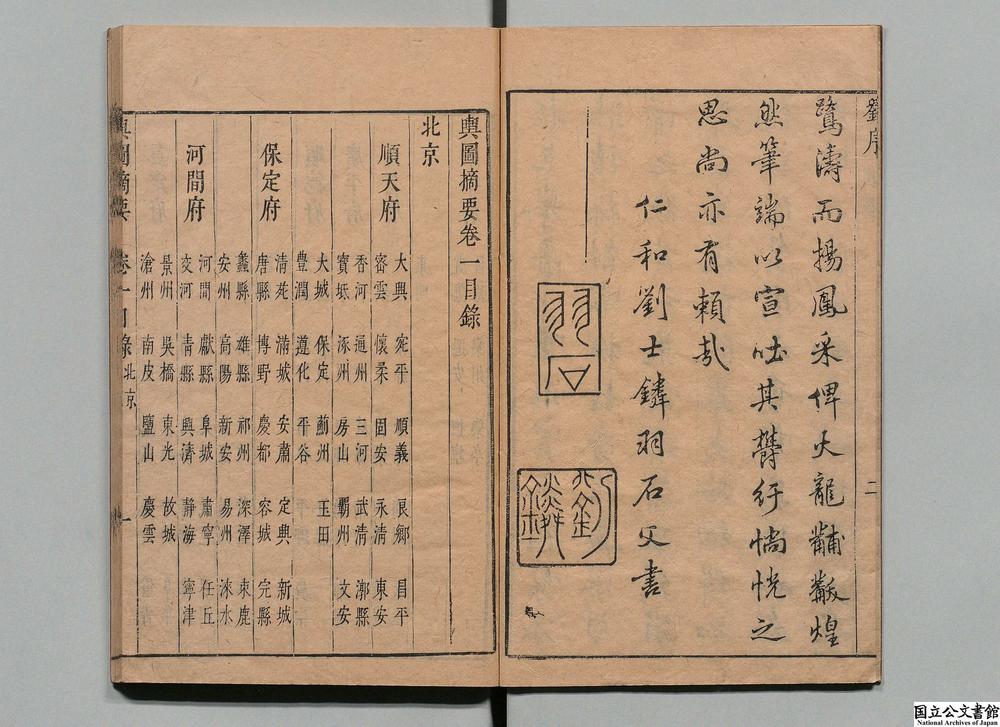 劉序
二
鷺濤而揚鳳采俾火龍黼黻煌
然筆端以宣吐其欝紆惝恍之
思尚亦有賴哉
仁和劉士鏻羽石父書
羽石
劉士鏻
輿圖摘要卷一目錄
北京
順天府
大興 宛平 順義 良鄉 昌平
密雲 懷柔 固安 永清 東安
香河 通州 三河 武清 漷縣
寶坻 涿州 房山 霸州 文安
大城 保定 薊州 玉田
豐潤 遵化 平谷
保定府
清苑 滿城 安肅 定興 新城
唐縣 博野 慶都 容城 完縣
蠡縣 雄縣 祁州 深澤 束鹿
安州 高陽 新安 易州 淶水
河間府
河間 獻縣 阜城 肅寧 任丘
交河 青縣 興濟 靜海 寧津
景州 吳橋 東光 故城
滄州 南皮 鹽山 慶雲
輿圖摘要 卷一目錄 北京 一
国立公文書館
National Archives of Japan